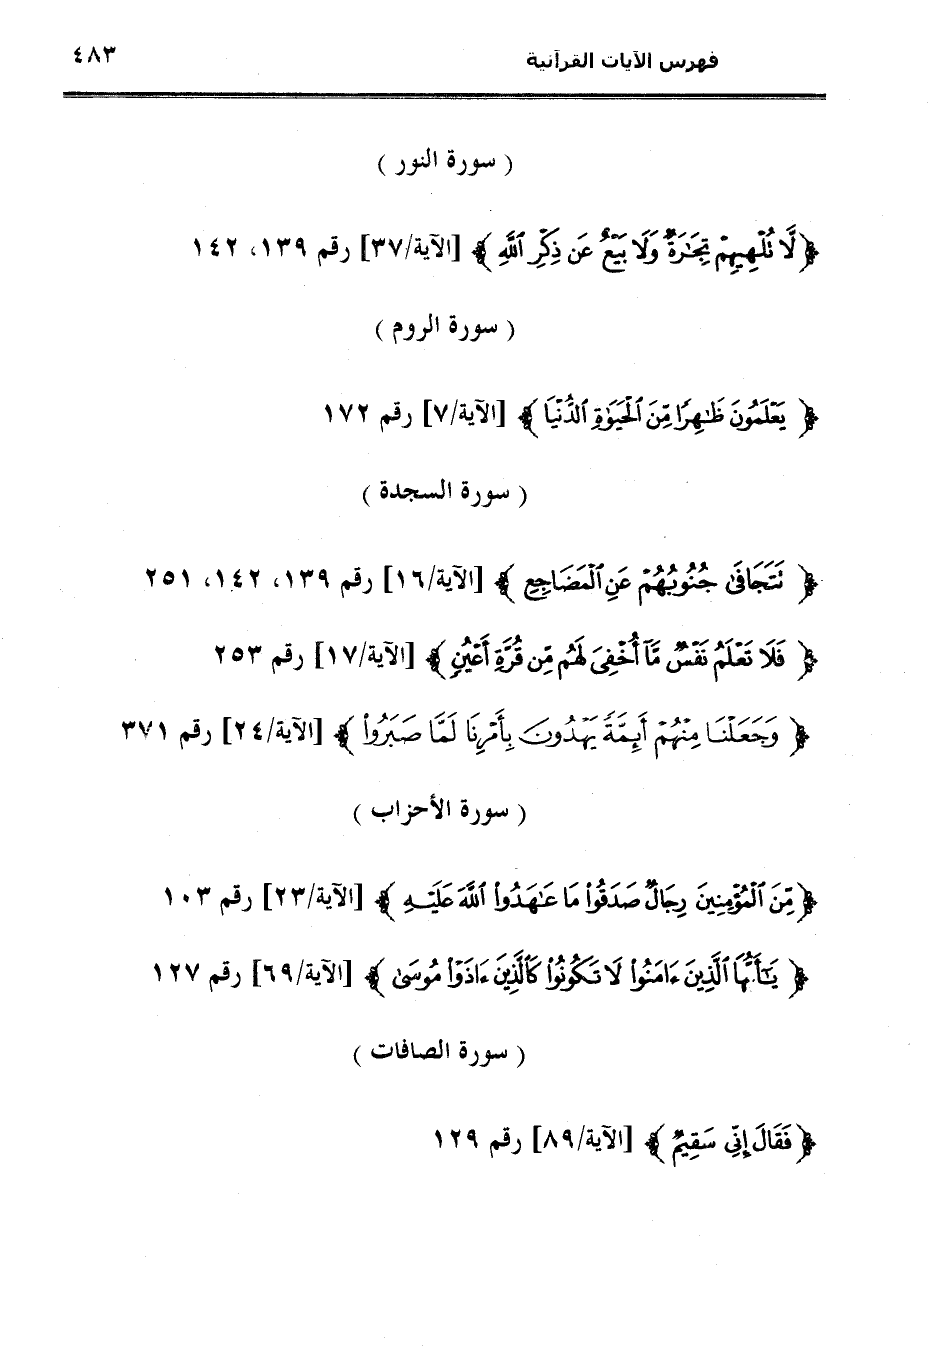 فهرس الآيات القرآنية ٤٨٣
( سورة النور )
﴿ لَّا تُلْهِيهِمْ تِجَٰرَةٌ وَلَا بَيْعٌ عَن ذِكْرِ ٱللَّهِ ﴾ [الآية/٣٧] رقم ١٣٩، ١٤٢
( سورة الروم )
﴿ يَعْلَمُونَ ظَٰهِرًا مِّنَ ٱلْحَيَوٰةِ ٱلدُّنْيَا ﴾ [الآية/٧] رقم ١٧٢
( سورة السجدة )
﴿ نَتَجَافَىٰ جُنُوبُهُمْ عَنِ ٱلْمَضَاجِعِ ﴾ [الآية/١٦] رقم ١٣٩، ١٤٢، ٢٥١
﴿ فَلَا تَعْلَمُ نَفْسٌ مَّآ أُخْفِىَ لَهُم مِّن قُرَّةِ أَعْيُنٍ ﴾ [الآية/١٧] رقم ٢٥٣
﴿ وَجَعَلْنَا مِنْهُمْ أَئِمَّةً يَهْدُونَ بِأَمْرِنَا لَمَّا صَبَرُواْ ﴾ [الآية/٢٤] رقم ٣٧١
( سورة الأحزاب )
﴿ مِّنَ ٱلْمُؤْمِنِينَ رِجَالٌ صَدَقُواْ مَا عَٰهَدُواْ ٱللَّهَ عَلَيْهِ ﴾ [الآية/٢٣] رقم ١٠٣
﴿ يَٰٓأَيُّهَا ٱلَّذِينَ ءَامَنُواْ لَا تَكُونُواْ كَٱلَّذِينَ ءَاذَوْاْ مُوسَىٰ ﴾ [الآية/٦٩] رقم ١٢٧
( سورة الصافات )
﴿ فَقَالَ إِنِّى سَقِيمٌ ﴾ [الآية/٨٩] رقم ١٢٩